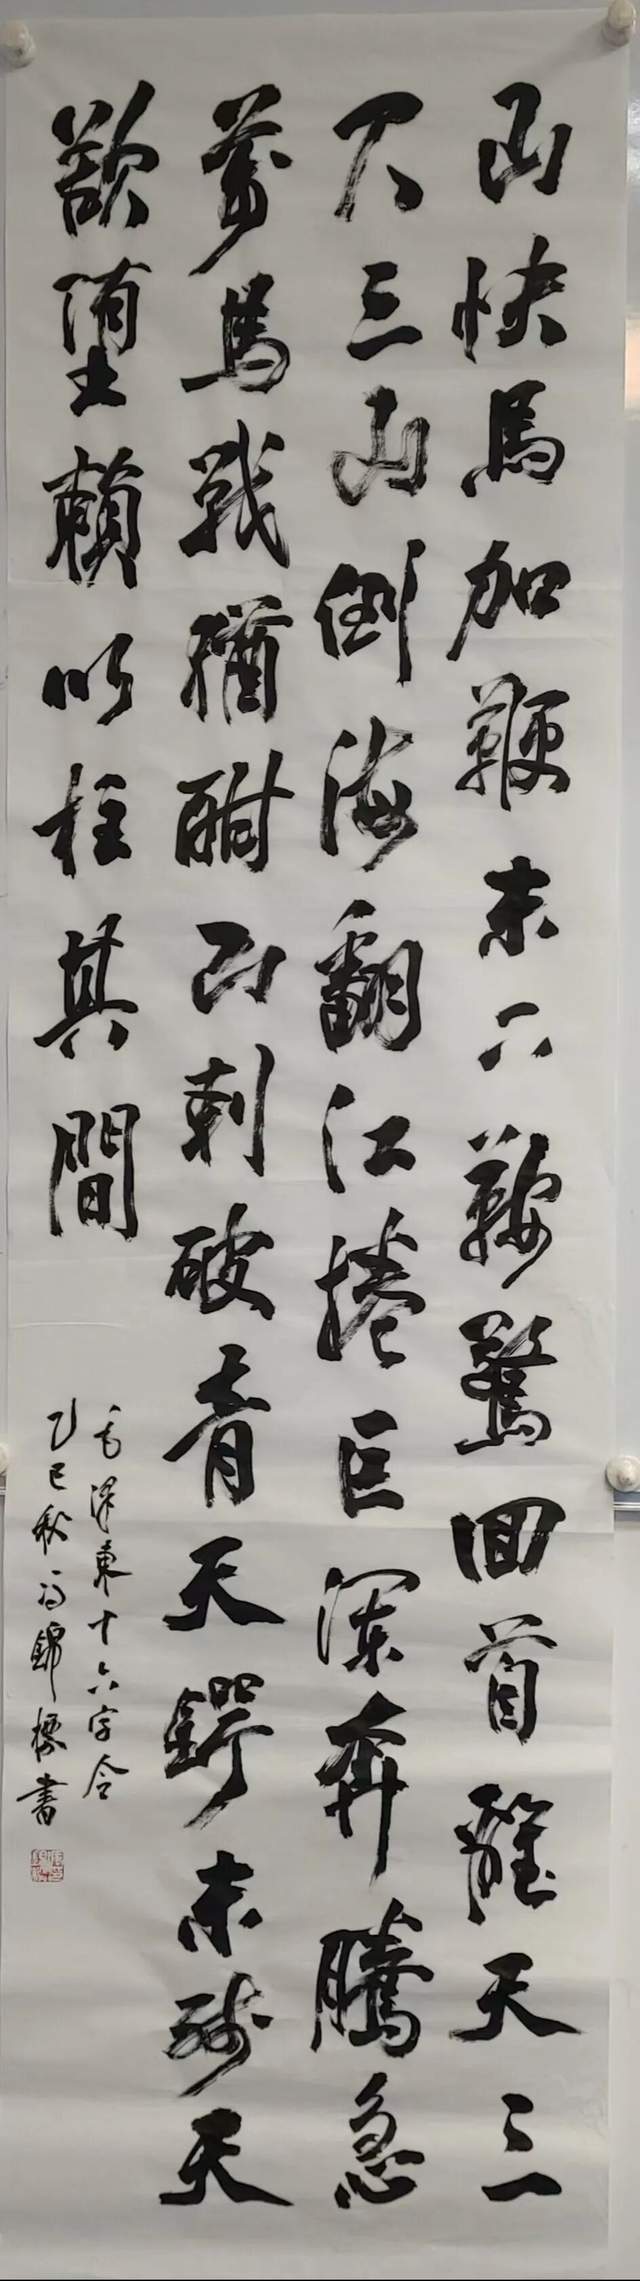 山快馬加鞭未下鞍驚回首離天三
尺三山倒海翻江捲巨瀾奔騰急
萬馬戰猶酣山刺破青天鍔未殘天
欲墮賴以柱其間
毛澤東十六字令
乙巳秋馮錦標書